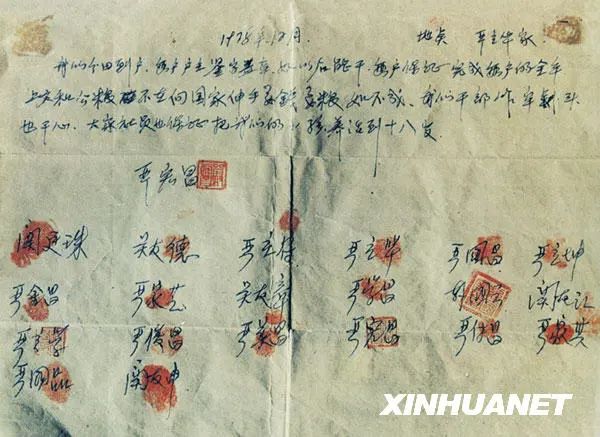 1978年12月. 地点 严立华家.
我们分田到户,每户户主签字盖章,如以后能干,每户保证完成每户的全年
上交和公粮 不在向国家伸手要钱要粮,如不成,我们干部作牢刹头
也干心,大家社员也保证把我们的小孩养活到十八岁.
严宏昌
关廷珠 关友德 严立符 严立华 严国昌 严立坤
严金昌 严家芝 关友章 严学昌 韩国云 关友江
严立学 严俊昌 严美昌 严宏昌 严付昌 严家其
严国品 关友申
XINHUANET